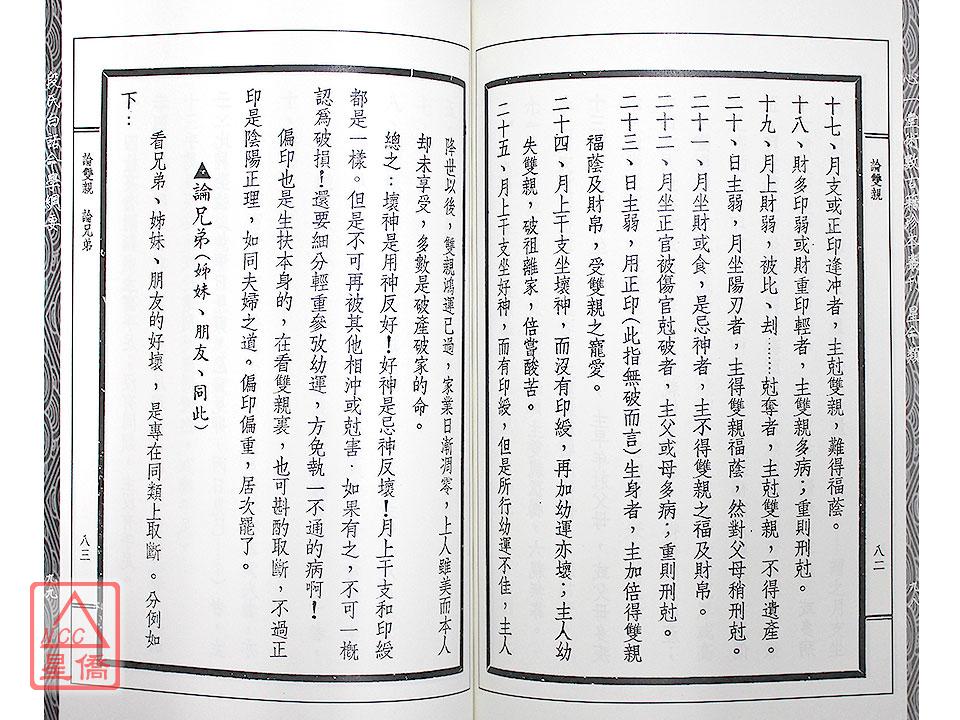 論雙親
八二
十七、月支或正印逢冲者，主尅雙親，難得福蔭。
十八、財多印弱或財重印輕者，主雙親多病；重則刑尅。
十九、月上財弱，被比、刦……尅奪者，主尅雙親，不得遺產。
二十、日主弱，月坐陽刃者，主得雙親福蔭，然對父母稍刑尅。
二十一、月坐財或食，是忌神者，主不得雙親之福及財帛。
二十二、月坐正官被傷官尅破者，主父或母多病；重則刑尅。
二十三、日主弱，用正印（此指無破而言）生身者，主加倍得雙親
福蔭及財帛，受雙親之寵愛。
二十四、月上干支坐壞神，而沒有印綬，再加幼運亦壞；主人幼
失雙親，破祖離家，倍嘗酸苦。
二十五、月上干支坐好神，而有印綬，但是所行幼運不佳，主人
降世以後，雙親鴻運已過，家業日漸凋零，上人雖美而本人
却未享受，多數是破產破家的命。
總之：壞神是用神反好！好神是忌神反壞！月上干支和印綬
都是一樣。但是不可再被其他相沖或尅害．如果有之，不可一概
認爲破損！還要細分輕重參攷幼運，方免執一不通的病啊！
偏印也是生扶本身的，在看雙親裏，也可斟酌取斷，不過正
印是陰陽正理，如同夫婦之道。偏印偏重，居次罷了。
▲論兄弟（姊妹、朋友、同此）
看兄弟、姊妹、朋友的好壞，是專在同類上取斷。分例如
下：
論雙親　論兄弟
八三
NCC
星僑